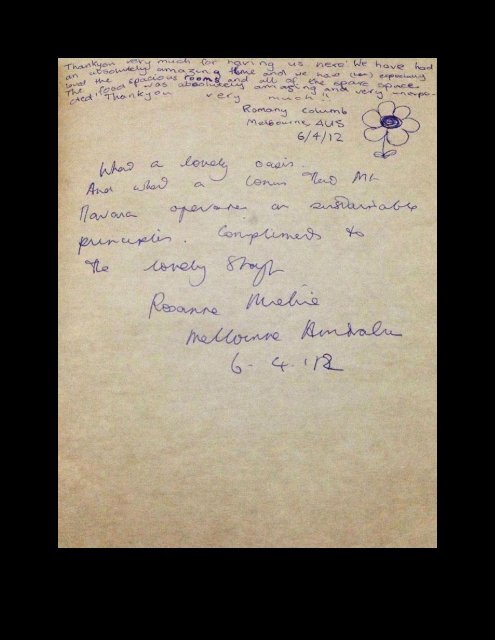 Thankyou very much for having us here! We have had
an absolutely amazing time and we have (us) especially
loved the spacious rooms and all of the spare space.
The food was absolutely amazing and very unexpe-
cted! Thankyou very much!!
Romany Columb
Melbourne AUS
6/4/12
What a lovely oasis.
And what a bonus that Mt
Navara operates on sustainable
principles. Compliments to
the lovely staff
Rosanne
Melbourne Australia
6-4-12